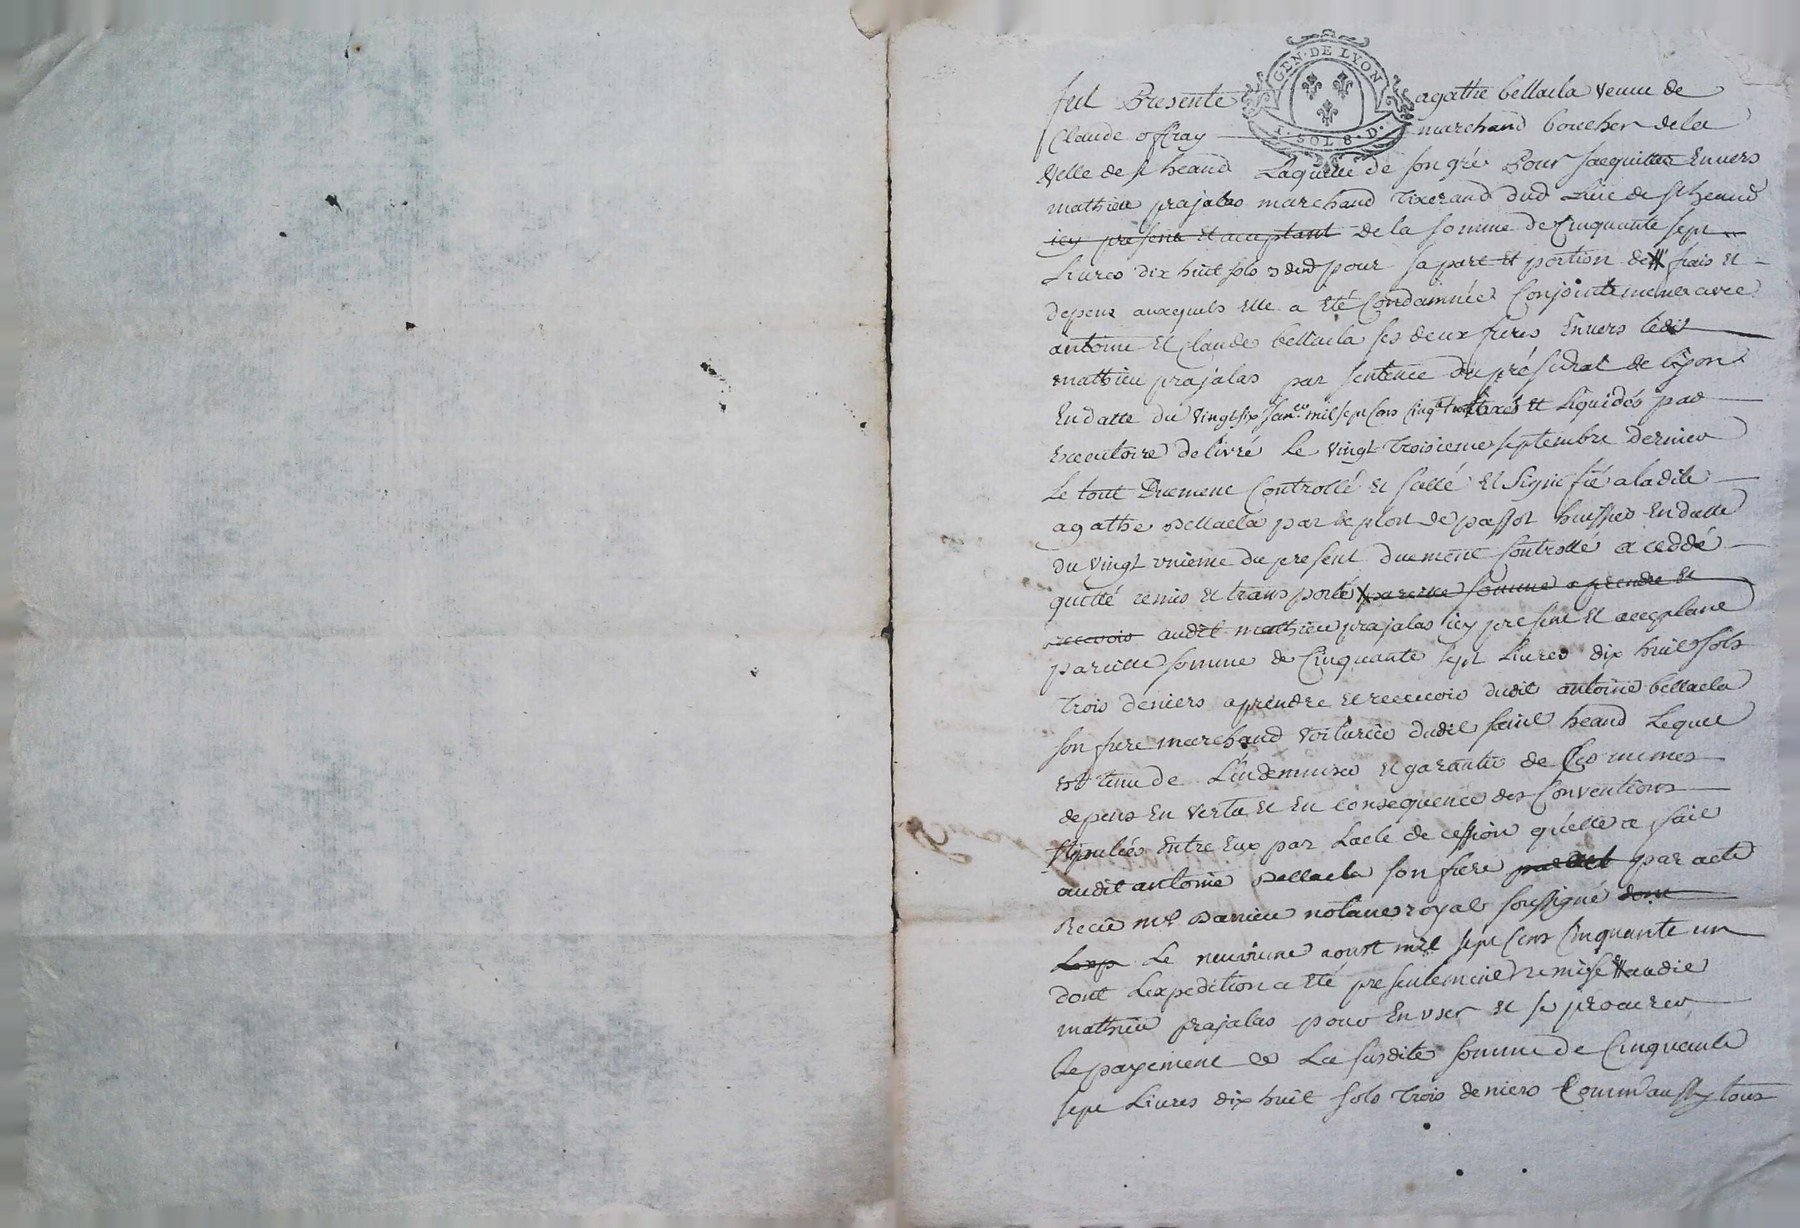 GEN · DE LYON
1 · SOL 8 · D ·
fut Presente agathe bellacla veuve de
Claude offray marchand boucher de la
ville de st heand Laquelle de son gré Pour sacquitter Envers
mathieu prajalas marchand Tixerand dud Lieu de st heand
icy present et acceptant de la somme de Cinquante sept
Livres dix huit sols 3 den pour sa part et portion des frais et
depens auxquels elle a été Condamnée Conjointement avec
antoine et Claude bellacla ses deux freres Envers ledit
mathieu prajalas par sentence du présidial de lyon
En datte du vingt six mil sept Cens et Liquidés par
executoire delivré Le vingt troisieme septembre dernier
Le tout Duement Controllé et sellé et Signifié a la dite
agathe Bellacla par exploit de passot huissier En datte
du vingt unieme du present duement Controllé a ceddé
quitté remis et transporté pareille somme a prendre et
recevoir audit mathieu prajalas icy present et acceptant
pareille somme de Cinquante sept Livres dix huit sols
trois deniers a prendre et recevoir dudit antoine bellacla
son frere marchand voiturier dudit saint heand Lequel
est tenu de L'indemniser et garantir de Ces mêmes
depens En vertu et En consequence des Conventions
stipulées Entre Eux par Lacte de cession qu'elle a fait
audit antoine Bellacla son frere par acte
Recu me notaire royal soussigné dont
Lexp Le neuvieme aoust mil sept Cens Cinquante un
dont Lexpedition a été presentement remise audit
mathieu prajalas pour En user et se procurer
Le payement de La susdite somme de Cinquante
sept Livres dix huit sols trois deniers Comm'aussy tous